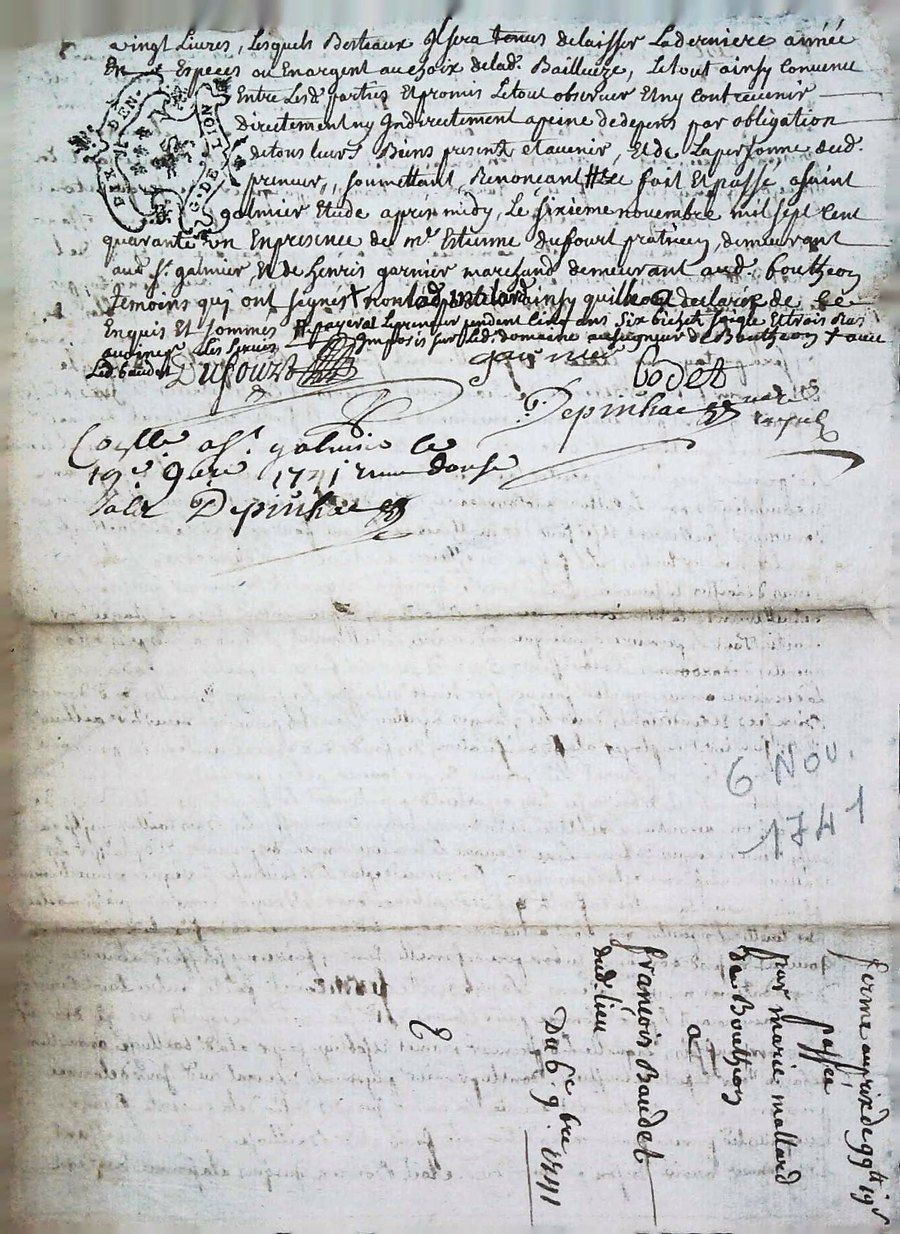 vingt Livres, Lesquels Bestiaux Il sera tenus de laisser La derniere année
En Especes ou En argent au choix de lad. Bailleuze, Le tout ainsy Convenu
Entre Lesd. parties Et promis Le tout observer Et ny Contrevenir
directement ny Indirectement a peine de depens par obligation
de tous leurs Biens present et avenir, Et de La personne dud.
preneur, soumettant, Renonçant &c fait Et passé a saint
galmier Etude apres midy, Le sixieme novembre mil sept Cent
quarante un En presence de mr. Estienne duffourt praticien, demeurant
aud. St. galmier, Et de henris garnier marchand demeurant aud. bouthéon
temoins qui ont signés + non lad. mallard ainsy quelle a declaré de ce
Enquis Et sommés # payera Le preneur pendent Cinq ans six bichet seigle Et trois Ras
avoine Imposés sur led. domaine au seigneur de Bouthéon + avec
Led. baudet
Dufourt
garnier
bodet
Depinhac
Conlle. a St. galmier le
19e. 9bre 1741 douse
Depinhac
G. DE LION
6 Nov.
1741
ferme au prix de 99 tt 19 s
passée
par marie mallard
de Bouthéon
a
françois Baudet
dud. lieu
Du 6e. 9bre 1741